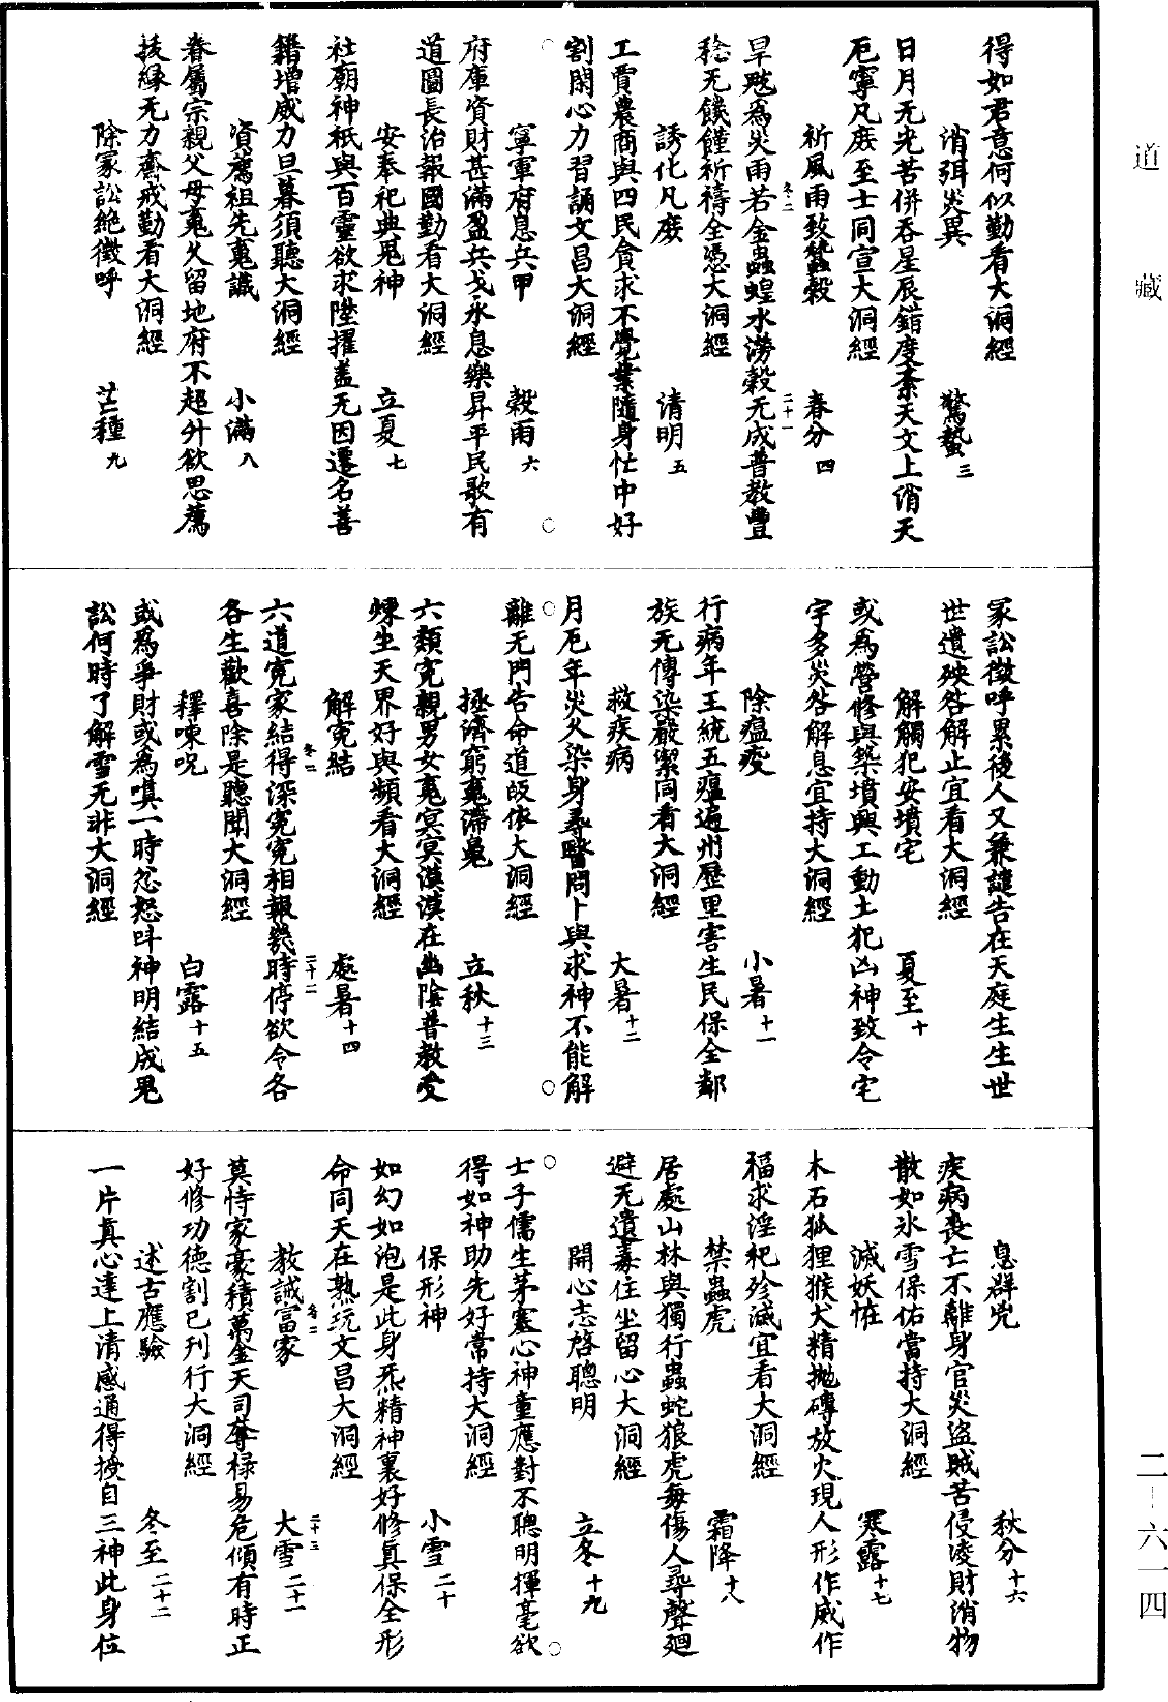 道藏
二—六一四
得如君意何似勤看大洞經
消弭災異　驚蟄三
日月无光苦併吞星辰錯度紊天文上消天
厄寧凡庶至士同宣大洞經
祈風雨致蟄穀　春分四
旱魃為災雨若金蟲蝗水澇穀无成普教豐
稔无饑饉祈禱全憑大洞經
誘化凡庶　清明五
工賈農商與四民貪求不覺業隨身忙中好
割閑心力習誦文昌大洞經
寧軍府息兵甲　穀雨六
府庫資財甚滿盈兵戈永息樂昇平民歌有
道圖長治報國勤看大洞經
安奉祀典鬼神　立夏七
社廟神祇與百靈欲求陞擢盖无因遷名善
籍增威力旦暮須聽大洞經
資薦祖先䰟識　小滿八
眷屬宗親父母䰟久留地府不超升欲思薦
拔緣无力齋戒勤看大洞經
除冢訟絕徵呼　芒種九
冢訟徵呼累後人又兼譴告在天庭生生世
世遺殃咎解止宜看大洞經
解觸犯安墳宅　夏至十
或為營修與築墳興工動土犯凶神致令宅
宇多災咎解息宜持大洞經
除瘟疫　小暑十一
行病年王統五瘟遍州歷里害生民保全鄰
族无傳染嚴潔同看大洞經
救疾病　大暑十二
月厄年災火染身尋醫問卜與求神不能解
離无門告命道皈依大洞經
拯濟窮䰟滯鬼　立秋十三
六類寃親男女䰟冥冥漠漠在幽陰普教受
煉生天界好與頻看大洞經
解寃結　處暑十四
六道寃家結得深寃寃相報幾時停欲令各
各生歡喜除是聽聞大洞經
釋唻呪　白露十五
或為爭財或為嗔一時忿怒呌神明結成鬼
訟何時了解雪无非大洞經
息群兇　秋分十六
疾病喪亡不離身官災盜賊苦侵凌財消物
散如氷雪保佑當持大洞經
滅妖恠　寒露十七
木石狐狸猴犬精拋磚放火現人形作威作
福求淫祀殄滅宜看大洞經
禁蟲虎　霜降十八
居處山林與獨行蟲蛇狼虎每傷人尋聲廻
避无遺毒住坐留心大洞經
開心志啓聰明　立冬十九
士子儒生茅塞心神童應對不聰明揮毫欲
得如神助先好常持大洞經
保形神　小雪二十
如幻如泡是此身炁精神裏好修真保全形
命同天在熟玩文昌大洞經
教誡富家　大雪二十一
莫恃家豪積萬金天司奪祿易危傾有時正
好修功德割已刋行大洞經
述古應驗　冬至二十二
一片真心達上清感通得授自三神此身位